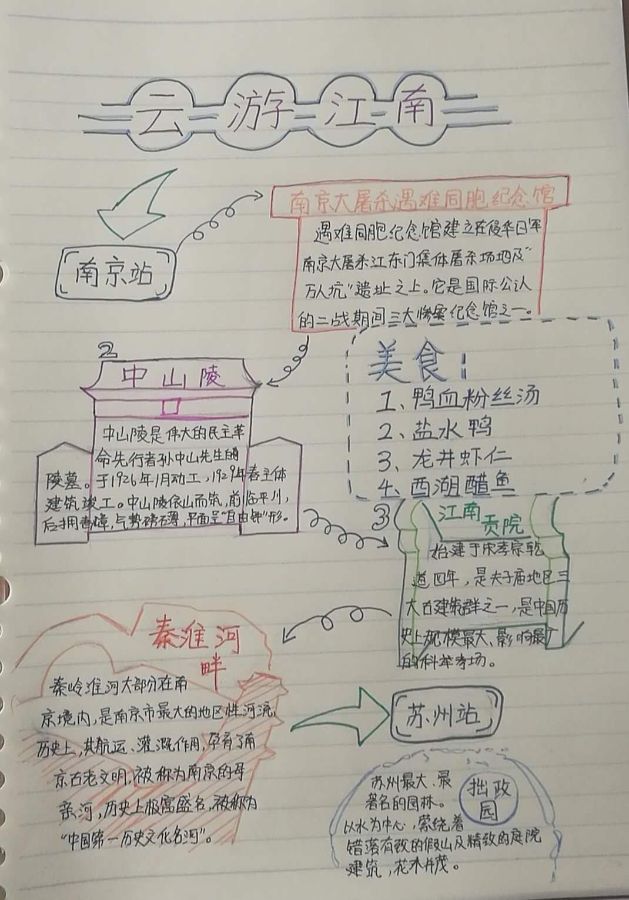 云游江南
南京站
南京大屠杀遇难同胞纪念馆
遇难同胞纪念馆建立在侵华日军
南京大屠杀江东门集体屠杀场地及“
万人坑”遗址之上。它是国际公认
的二战期间三大惨案纪念馆之一。
美食:
1、鸭血粉丝汤
2、盐水鸭
3、龙井虾仁
4、西湖醋鱼
2
中山陵
中山陵是伟大的民主革
命先行者孙中山先生的
陵墓。于1926年1月动工,1929年春主体
建筑竣工。中山陵依山而筑,前临平川,
后拥青嶂,气势磅礴,平面呈“自由钟”形。
3
江南
贡院
始建于宋孝宗乾
道四年,是夫子庙地区三
大古建筑群之一,是中国历
史上规模最大、影响最广
的科举考场。
秦淮河
畔
秦岭淮河大部分在南
京境内,是南京市最大的地区性河流,
历史上,其航运、灌溉作用,孕育了南
京古老文明,被称为南京的母
亲河,历史上极富盛名,被称为
“中国第一历史文化名河”。
苏州站
拙政
园
苏州最大、最
著名的园林。
以水为中心,萦绕着
错落有致的假山及精致的庭院
建筑,花木并茂。